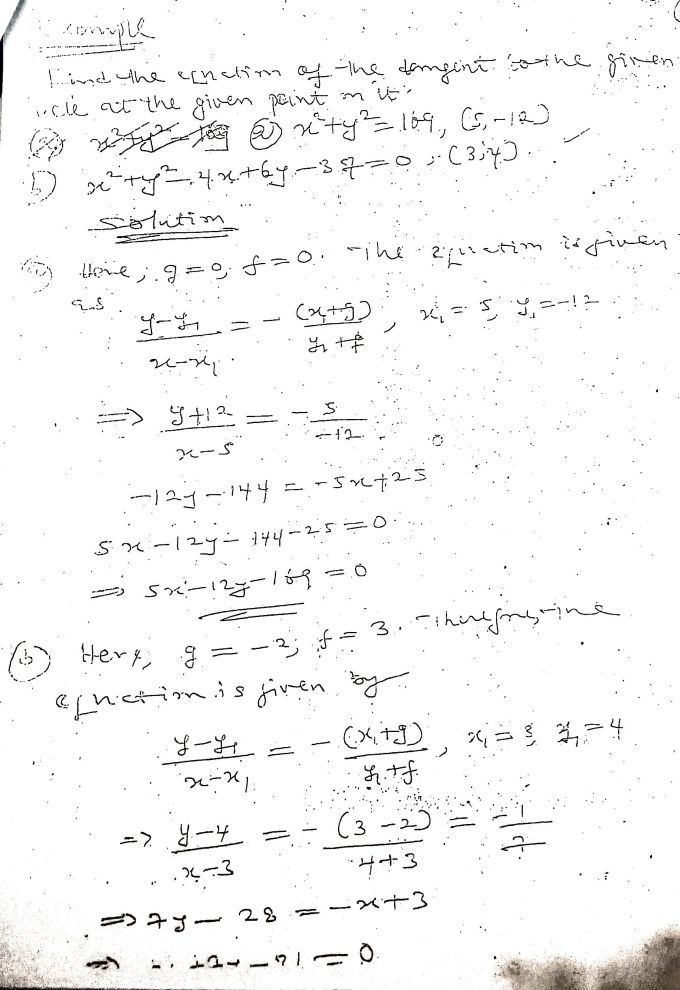 Example
Find the equation of the tangent to the given
circle at the given point on it.
(a) x²+y²=169, (5,-12)
b) x²+y²-4x+6y-37=0, (3,4).
Solution
(a) Here, g=0, f=0. The equation is given
as
(y-y₁)/(x-x₁) = -(x₁+g)/(y₁+f), x₁=5, y₁=-12
⇒ (y+12)/(x-5) = -5/-12
-12y-144 = -5x+25
5x-12y-144-25=0
⇒ 5x-12y-169=0
(b) Here, g=-2, f=3. Therefore, the
equation is given by
(y-y₁)/(x-x₁) = -(x₁+g)/(y₁+f), x₁=3, y₁=4
⇒ (y-4)/(x-3) = -(3-2)/(4+3) = -1/7
⇒ 7y-28=-x+3
⇒ -31=0